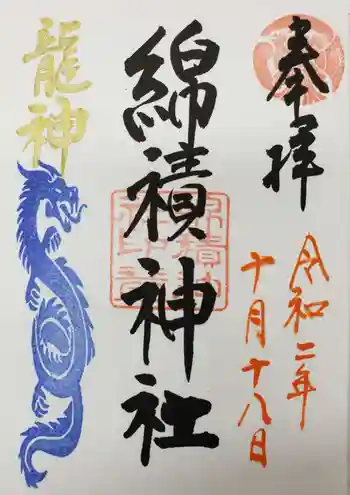 奉拝
令和二年
十月十八日
綿積神社
龍神